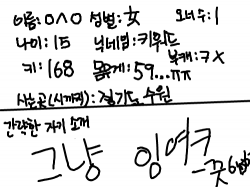 이름:0^0 성별:女 오너수:1
나이:15 닉네임:키위드
키:168 몸무게:59...ㅠㅠ 북캐:ㅋX
사는곳(시까지):경기도 수원
간략한 자기 소개
그냥 잉여ㅋ
-끗